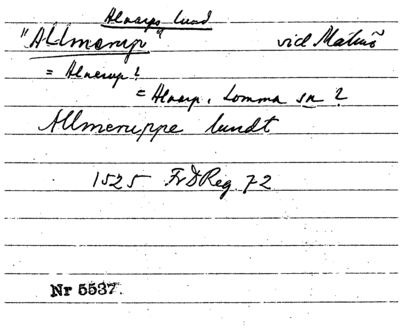 Alnarps lund
"Allmerup" vid Malmö
= Alnerup?
= Alnarp, Lomma sn?
Allmeruppe lundt
1525 FrDReg. 72
Nr 5537.